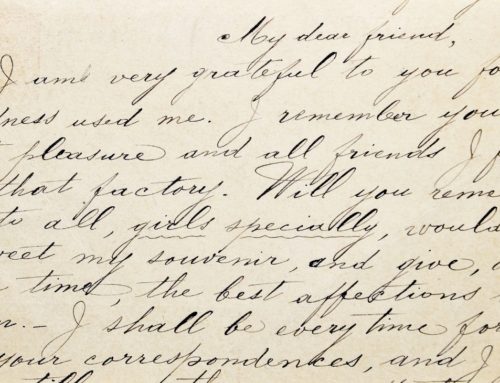 My dear friend,
I am very grateful to you fo
dness used me. I remember you
t pleasure and all friends I f
that factory. Will you reme
to all, girls specially, would
weet my souvenir, and give,
time, the best affections
n.- I shall be every time for
your correspondences, and I